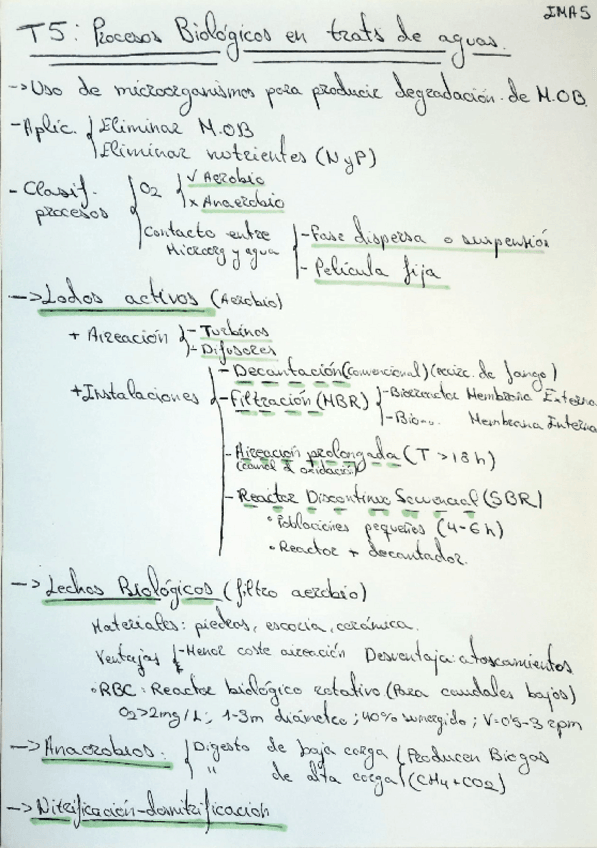 IMA5
T5: Procesos Biológicos en trats de aguas.
-> Uso de microorganismos para producir degradación de M.OB.
- Aplic. Eliminar M.OB
Eliminar nutrientes (N y P)
- Clasif. procesos
O2
√ Aerobio
x Anaerobio
Contacto entre
Microorg y agua
- Fase dispersa o suspensión
- Película fija
-> Lodos activos (Aerobio)
+ Aireación
- Turbinas
- Difusores
+ Instalaciones
- Decantación (convencional) (recirc. de fango)
- Filtración (MBR)
- Biorreactor Membrana Externa
- Bio... Membrana Interna
- Aireación prolongada (T > 18 h)
(canal d oxidación)
- Reactor Discontinuo Secuencial (SBR)
• Poblaciones pequeñas (4-6 h)
• Reactor + decantador.
-> Lechos Biológicos (filtro aerobio)
Materiales: piedras, escoria, cerámica.
Ventajas - Menor coste aireación Desventaja: atascamientos
• RBC: Reactor biológico rotativo (Para caudales bajos)
O2>2mg/L; 1-3m diámetro; 40% sumergido; V=0'5-3 rpm
-> Anaerobios: Digesto de baja carga (Producen Biogas
" de alta carga (CH4+CO2)
-> Nitrificación-desnitrificación